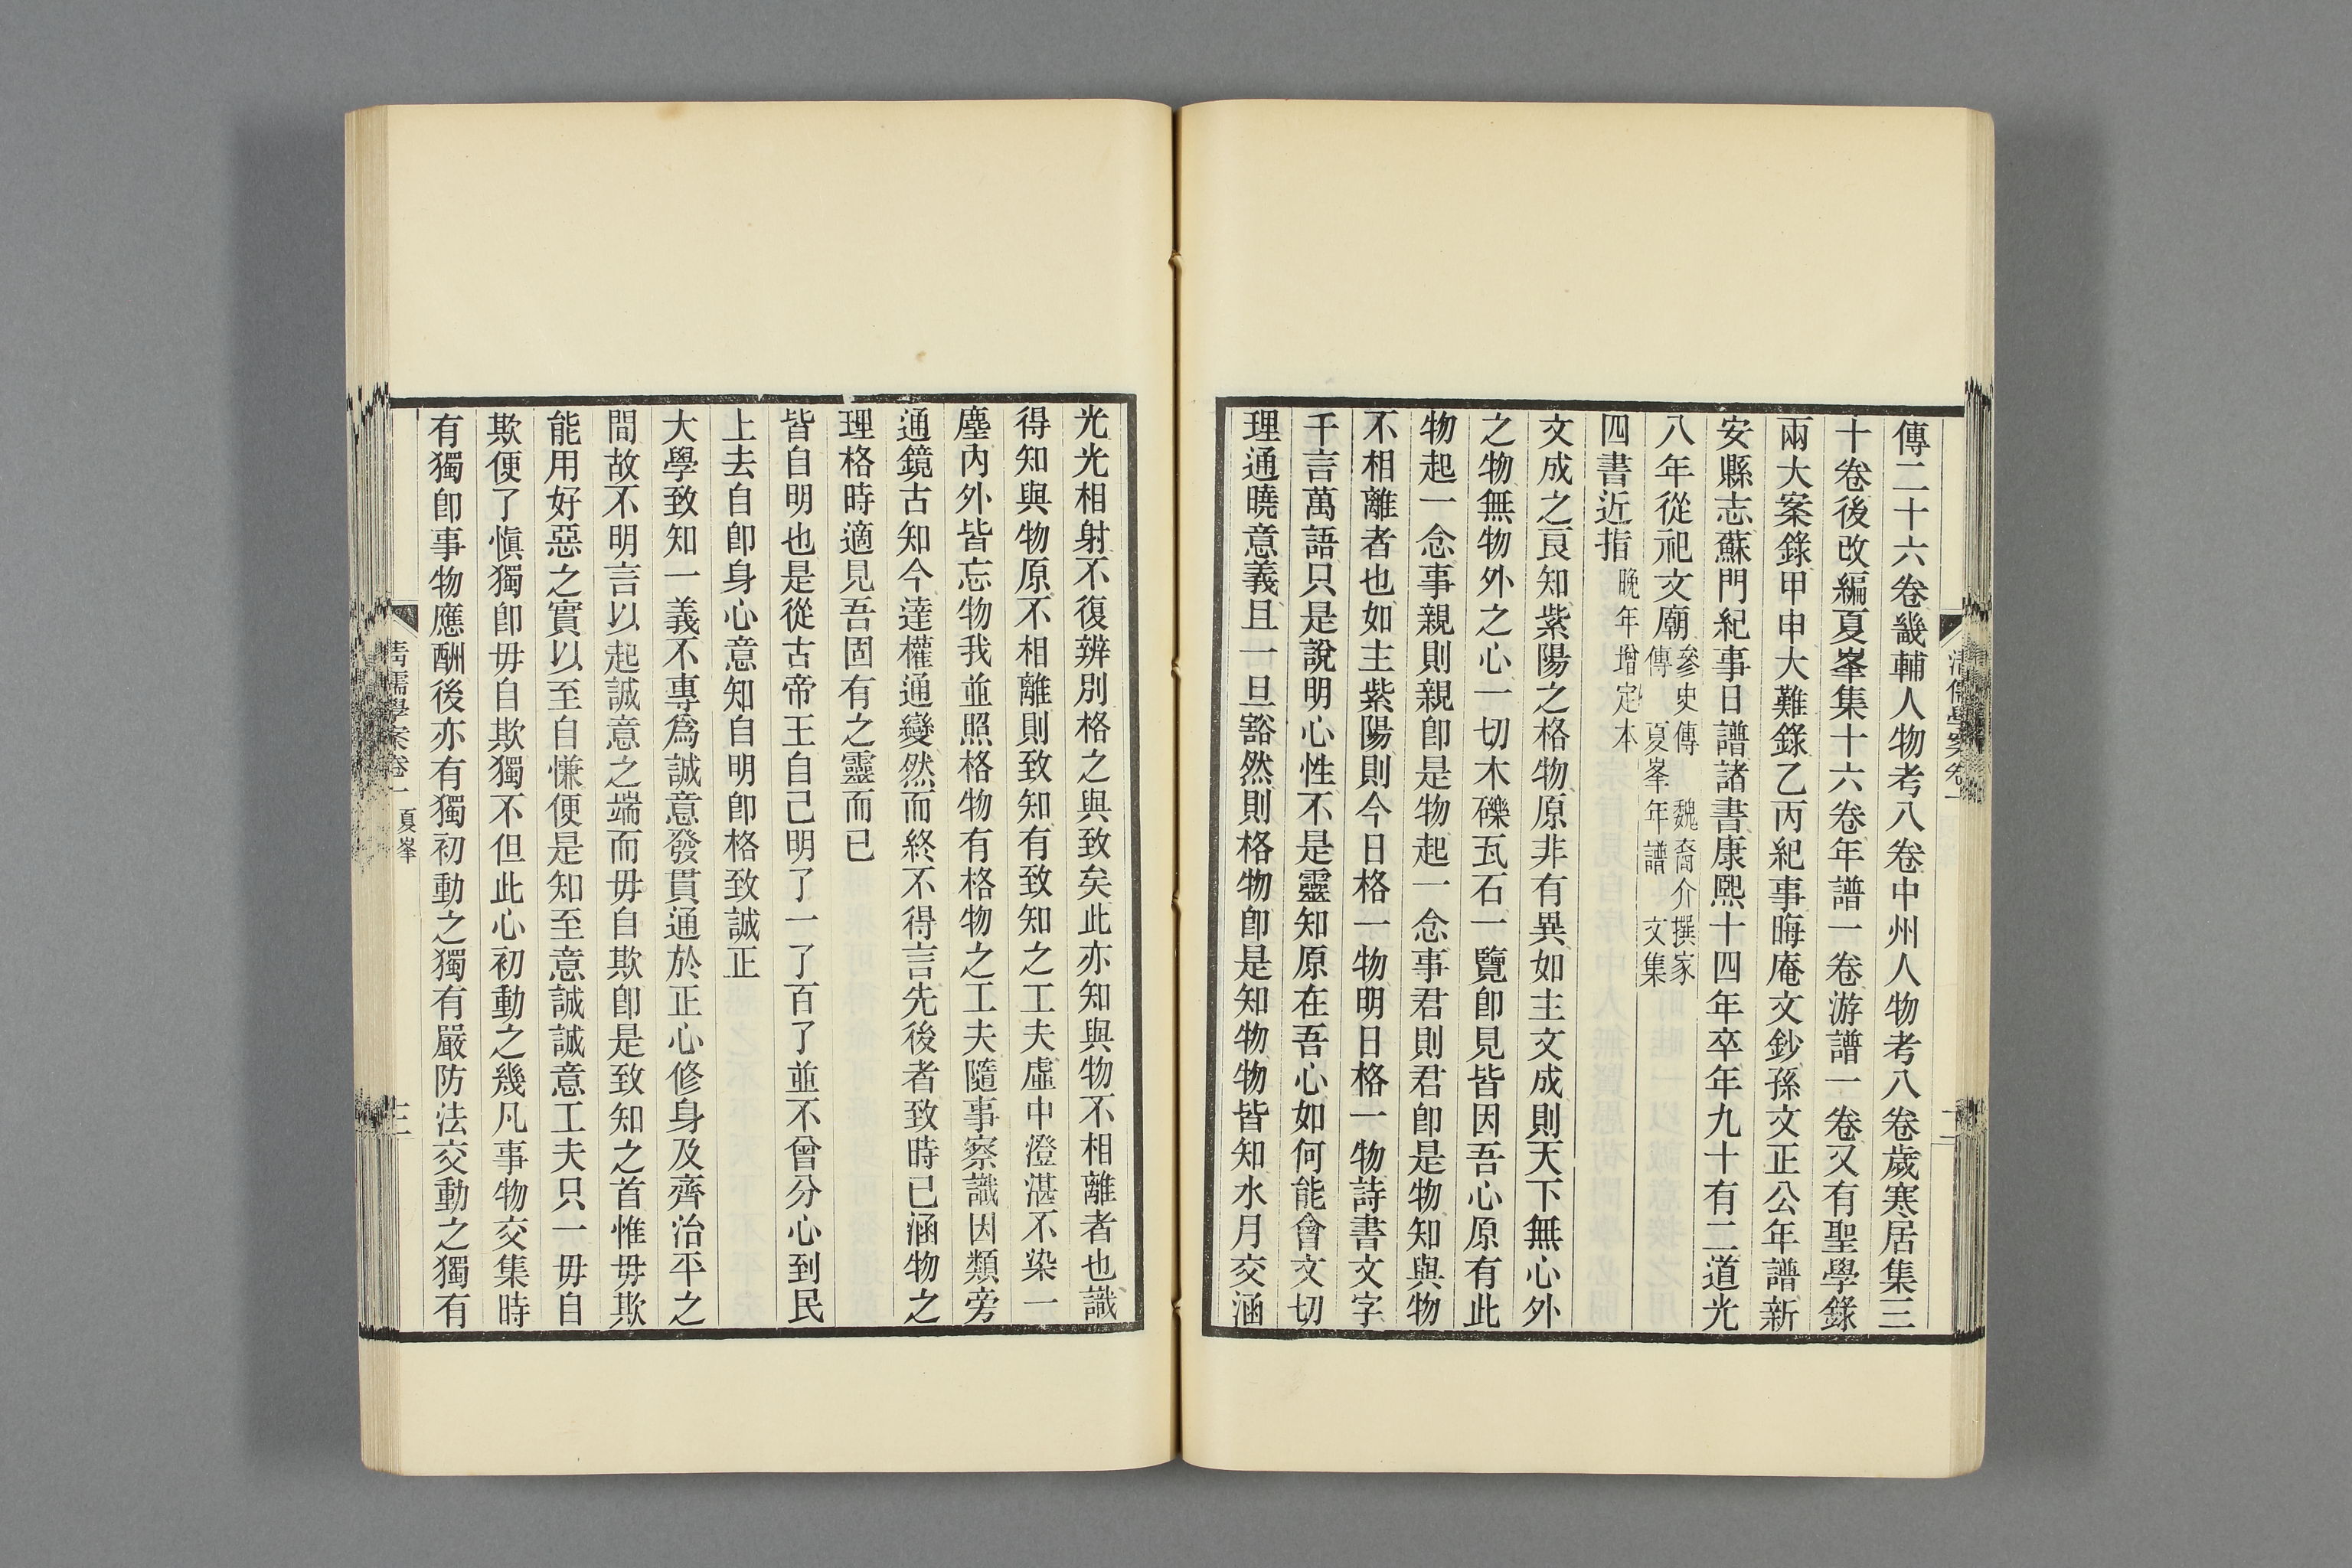 傳二十六卷畿輔人物考八卷中州人物考八卷歲寒居集三
十卷後改編夏峯集十六卷年譜一卷游譜一卷又有聖學錄
兩大案錄甲申大難錄乙丙紀事晦庵文鈔孫文正公年譜新
安縣志蘇門紀事日譜諸書康熙十四年卒年九十有二道光
八年從祀文廟參史傳 魏裔介撰家
傳 夏峯年譜 文集
四書近指晚年增定本
文成之良知紫陽之格物原非有異如主文成則天下無心外
之物無物外之心一切木礫瓦石一覽卽見皆因吾心原有此
物起一念事親則親卽是物起一念事君則君卽是物知與物
不相離者也如主紫陽則今日格一物明日格一物詩書文字
千言萬語只是說明心性不是靈知原在吾心如何能會文切
理通曉意義且一旦豁然則格物卽是知物物皆知水月交涵
清儒學案卷一
二
光光相射不復辨別格之與致矣此亦知與物不相離者也識
得知與物原不相離則致知有致知之工夫虛中澄湛不染一
塵內外皆忘物我並照格物有格物之工夫隨事察識因類旁
通鏡古知今達權通變然而終不得言先後者致時已涵物之
理格時適見吾固有之靈而已
皆自明也是從古帝王自己明了一了百了並不曾分心到民
上去自卽身心意知自明卽格致誠正
大學致知一義不專爲誠意發貫通於正心修身及齊治平之
間故不明言以起誠意之端而毋自欺卽是致知之首惟毋欺
能用好惡之實以至自慊便是知至意誠誠意工夫只一毋自
欺便了愼獨卽毋自欺獨不但此心初動之幾凡事物交集時
有獨卽事物應酬後亦有獨初動之獨有嚴防法交動之獨有
清儒學案卷一 夏峯
三